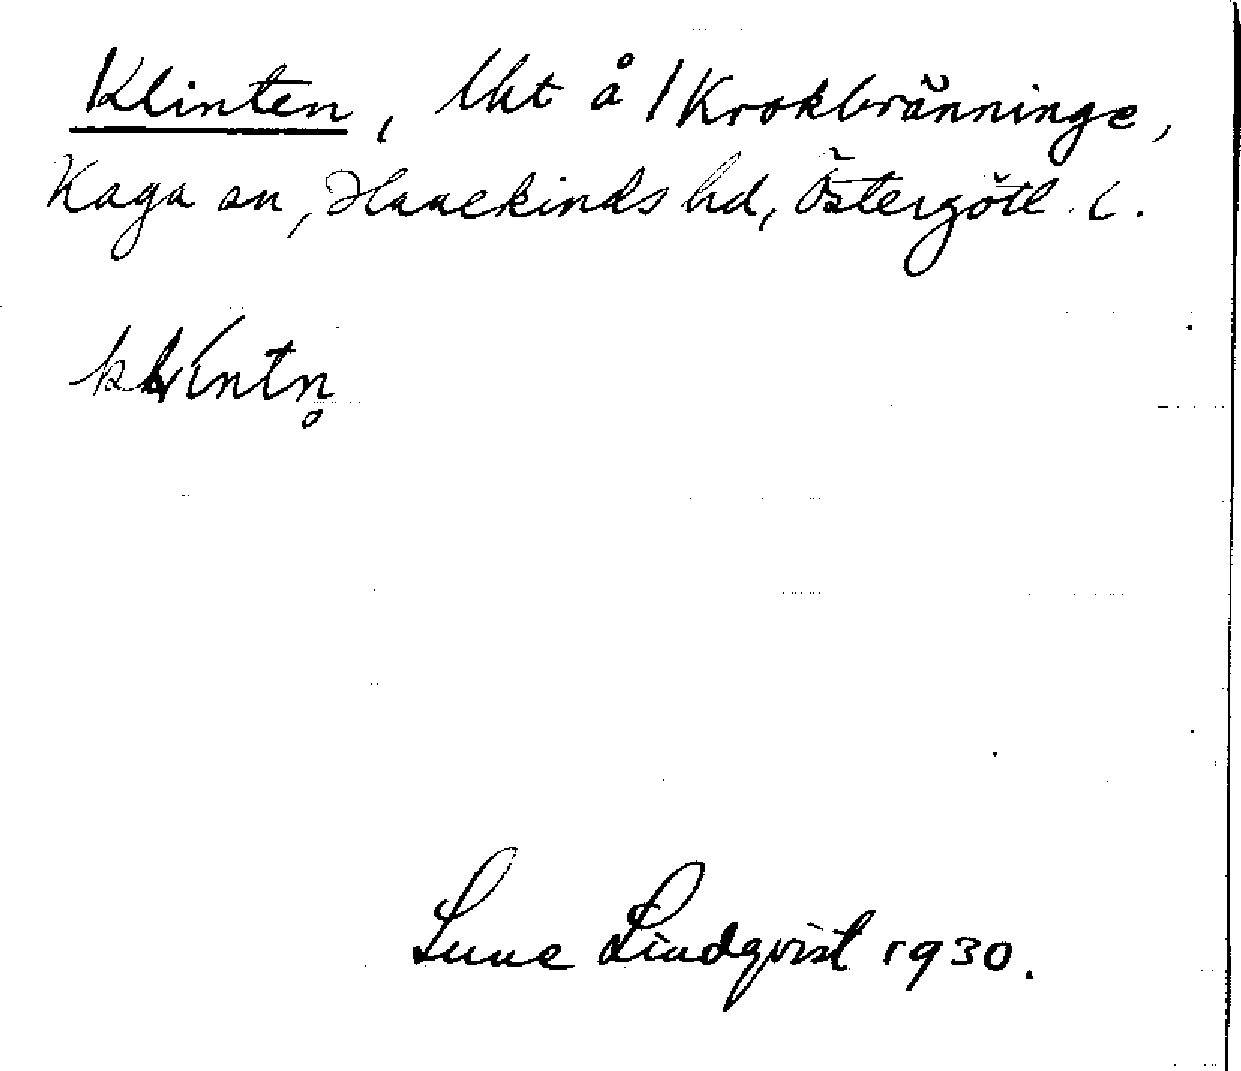 Klinten, lht å /Krokbränninge,
Kaga sn, Hanekinds hd, Östergötl. l.
klíntn̥
Sune Lindqvist 1930.